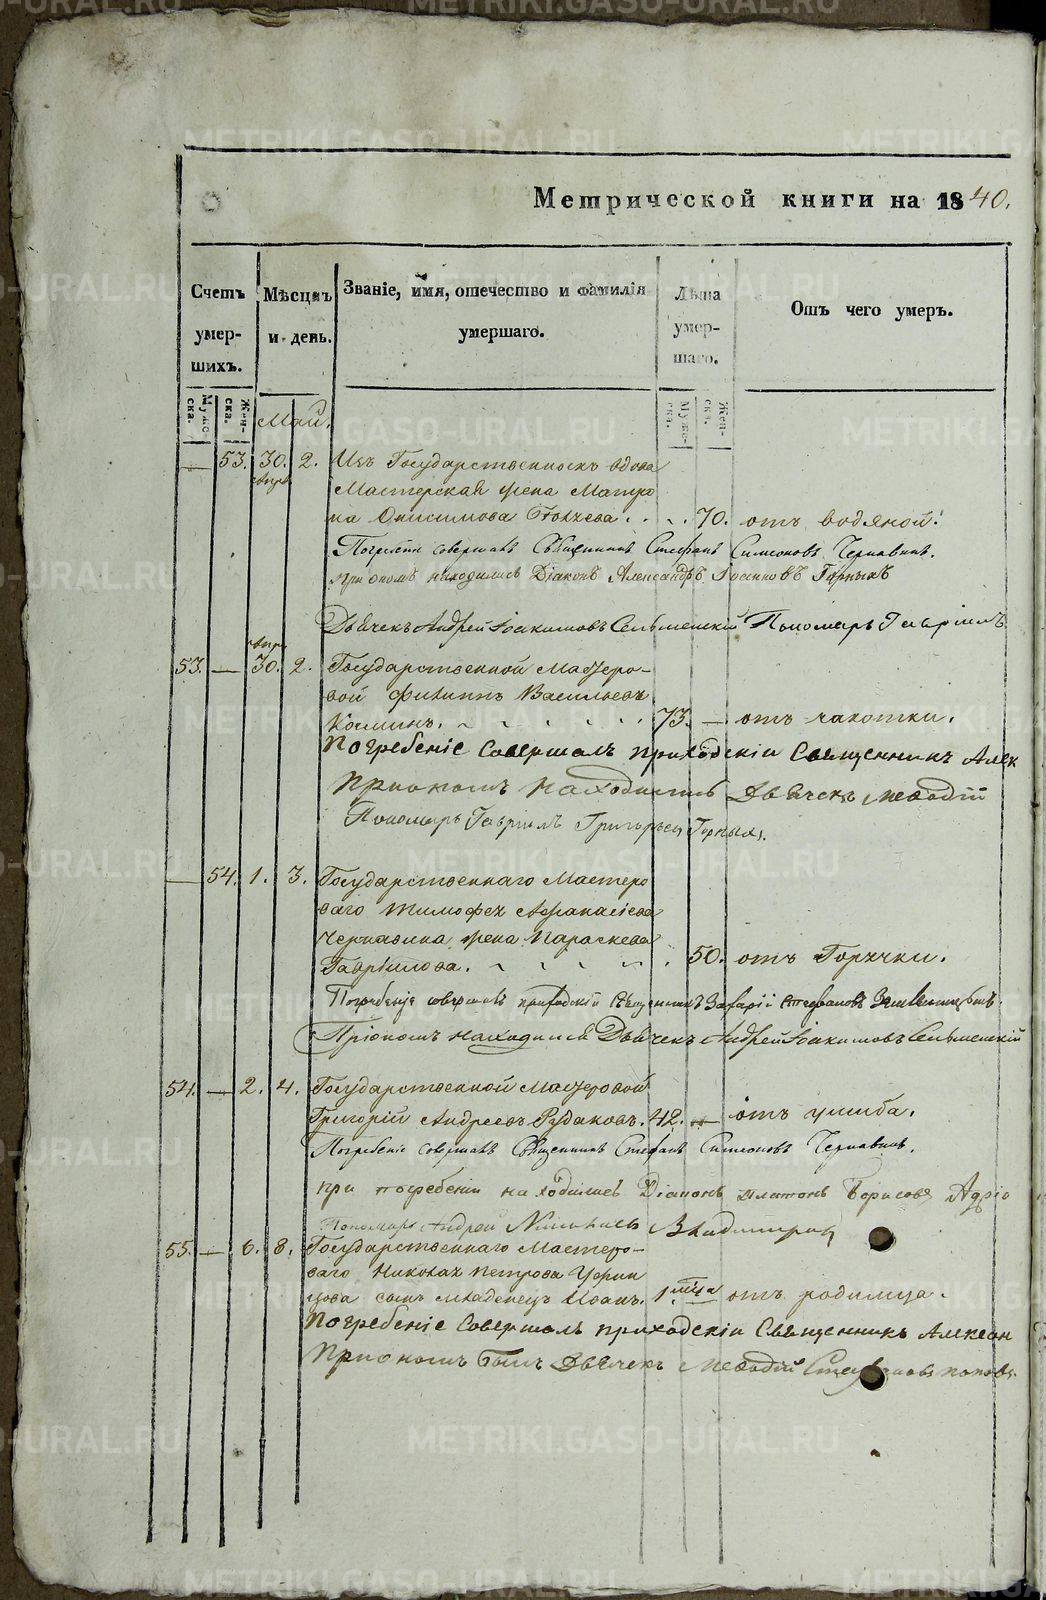 Метрической книги на 1840.
Счетъ умер- шихъ.
Мѣсяцъ и день.
Званіе, имя, отечество и фамилія умершаго.
Лѣта умер- шаго.
Отъ чего умеръ.
Муже- ска. Жен- ска.
Муже- ска. Жен- ска.
Май.
— 53. 30. 2. Изъ Государственныхъ вдова
Апр. Мастерская жена Матро
на Онисимова . . . 70. отъ водяной.
Погребеніе совершалъ Священникъ Стефанъ Симеоновъ Чернавинъ.
при ономъ находились Діаконъ Александръ Іоанновъ Горныхъ
Дьячекъ Андрей Іоакимовъ Сельменскій Пономарь Гавріилъ
Апр.
53. — 30. 2. Государственной Мастеро-
вой Филиппъ Васильевъ
Косминъ. 73. — отъ чахотки.
Погребеніе Совершалъ приходскій Священникъ Алек
При ономъ находились Дьячекъ Меѳодій
Пономарь Гавріилъ Григорьевъ Горныхъ.
— 54. 1. 3. Государственнаго Мастеро
ваго Тимофея Афанасіева
Чернавина жена Параскева
Гавріилова. 50. отъ Горячки.
Погребеніе совершалъ приходскій Священникъ Захарій Стефановъ
При ономъ находился Дьячекъ Андрей Іоакимовъ Сельменскій
54. — 2. 4. Государственной Мастеровой
Григорій Андреевъ Рудаковъ. 42. — отъ ушиба.
Погребеніе совершалъ Священникъ Стефанъ Симеоновъ Чернавинъ.
при погребеніи находились Діаконъ Платонъ Борисовъ
Пономарь Андрей
55. — 6. 8. Государственнаго Мастеро-
ваго Николая Петрова
сынъ младенецъ Іоанъ. 1 отъ родимца.
Погребеніе Совершалъ приходскій Священникъ Алексан
При ономъ былъ Дьячекъ Меѳодій Стефановъ Поповъ.
METRIKI.GASO-URAL.RU